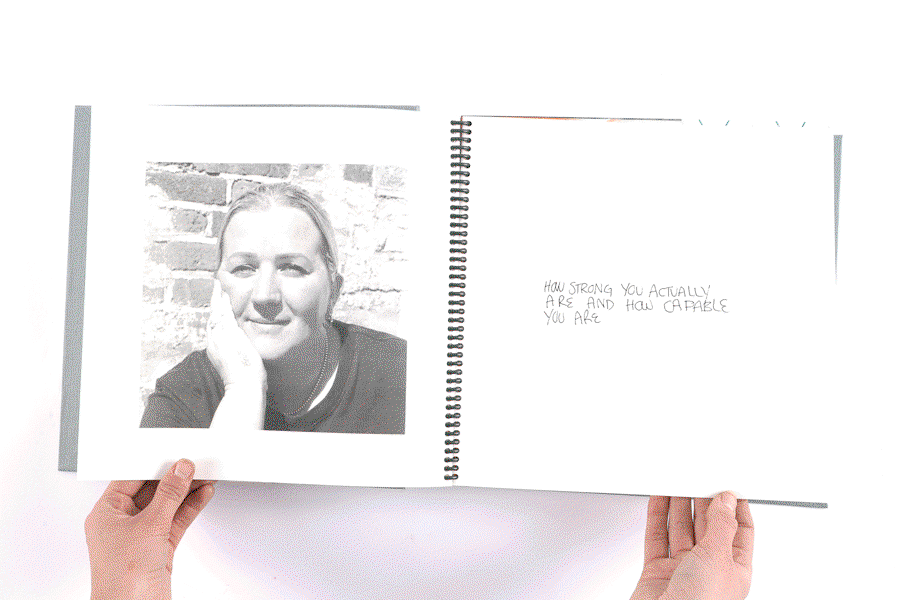 HOW STRONG YOU ACTUALLY
ARE AND HOW CAPABLE
YOU ARE